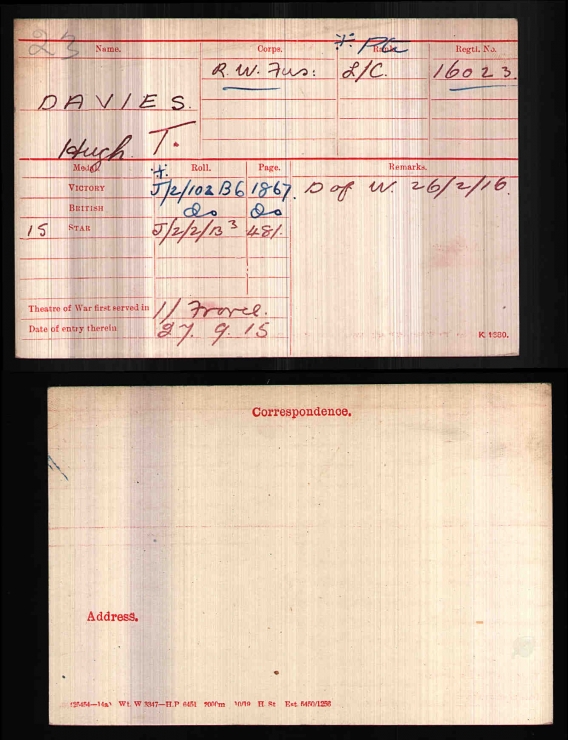 23
Name. Corps. Rank. Regtl. No.
* Pte
R. W. Fus: L/C. 16023.
DAVIES.
Hugh T.
Medal * Roll. Page. Remarks.
VICTORY J/2/102 B6 1867. D of W. 26/2/16.
BRITISH do do
15 STAR J/2/2/B3 481.
Theatre of War first served in (1) France.
Date of entry therein 27. 9. 15
K 1380.
Correspondence.
Address.
Wt. W 3347—H.P. 10/19 H. St